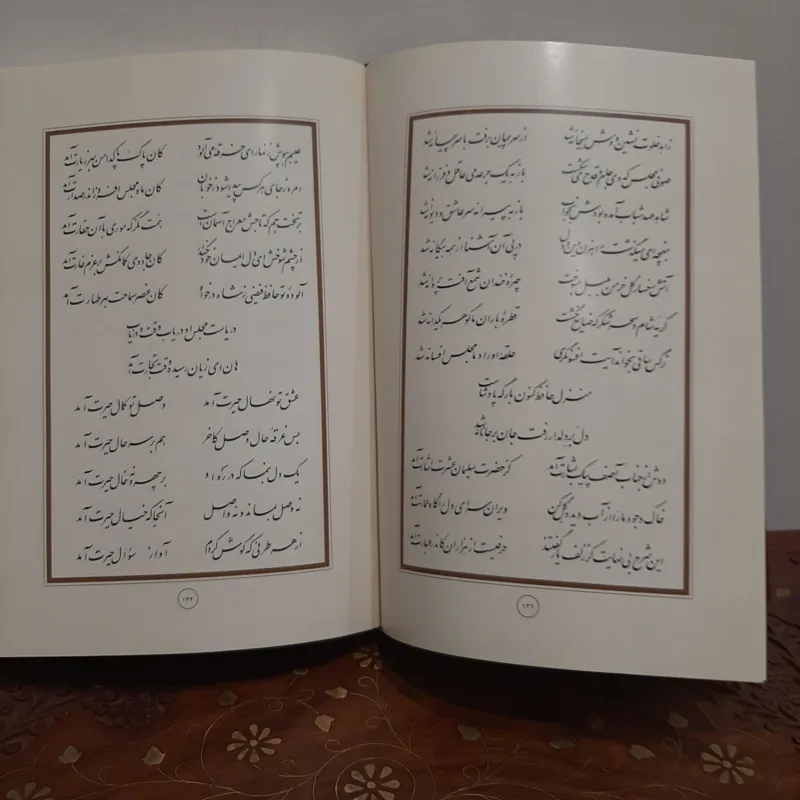 زاهد خلوت نشین دوش به میخانه شد از سر پیمان برفت با سر پیمانه شد
صوفی مجلس که دی جام و قدح می شکست باز به یک جرعه می عاقل و فرزانه شد
شاهد عهد شباب آمده بودش به خواب باز به پیرانه سر عاشق و دیوانه شد
مغبچه ای می گذشت راهزن دین و دل در پی آن آشنا از همه بیگانه شد
آتش رخسار گل خرمن بلبل بسوخت چهرهٔ خندان شمع آفت پروانه شد
گریهٔ شام و سحر شکر که ضایع نگشت قطرهٔ باران ما گوهر یکدانه شد
نرگس ساقی بخواند آیت افسونگری حلقهٔ اوراد ما مجلس افسانه شد
منزل حافظ کنون بارگه پادشاست
دل بر دلدار رفت جان بر جانانه شد
دوش از جناب آصف پیک بشارت آمد کز حضرت سلیمان عشرت اشارت آمد
خاک وجود ما را از آب دیده گل کن ویران سرای دل را گاه عمارت آمد
این شرح بی نهایت کز زلف یار گفتند حرفیست از هزاران کاندر عبارت آمد
عیبم بپوش زنهار ای خرقه می آلود کان پاک پاکدامن بهر زیارت آمد
امروز جای هر کس پیدا شود ز خوبان کان ماه مجلس افروز اندر صدارت آمد
بر تخت جم که تاجش معراج آسمان است همت نگر که موری با آن حقارت آمد
از چشم شوخش ای دل ایمان خود نگه دار کان جادوی کمانکش بر عزم غارت آمد
آلودهٔ تو حافظ فیضی ز شاه درخواه کان عنصر سماحت بهر طهارت آمد
دریاست مجلس او دریاب وقت و دریاب
هان ای زیان رسیده وقت تجارت آمد
عشق تو نهال حیرت آمد وصل تو کمال حیرت آمد
بس غرقهٔ حال وصل کاخر هم بر سر حال حیرت آمد
یک دل بنما که در ره او بر چهره نه خال حیرت آمد
نه وصل بماند و نه واصل آنجا که خیال حیرت آمد
از هر طرفی که گوش کردم آواز سؤال حیرت آمد
۱۴۲